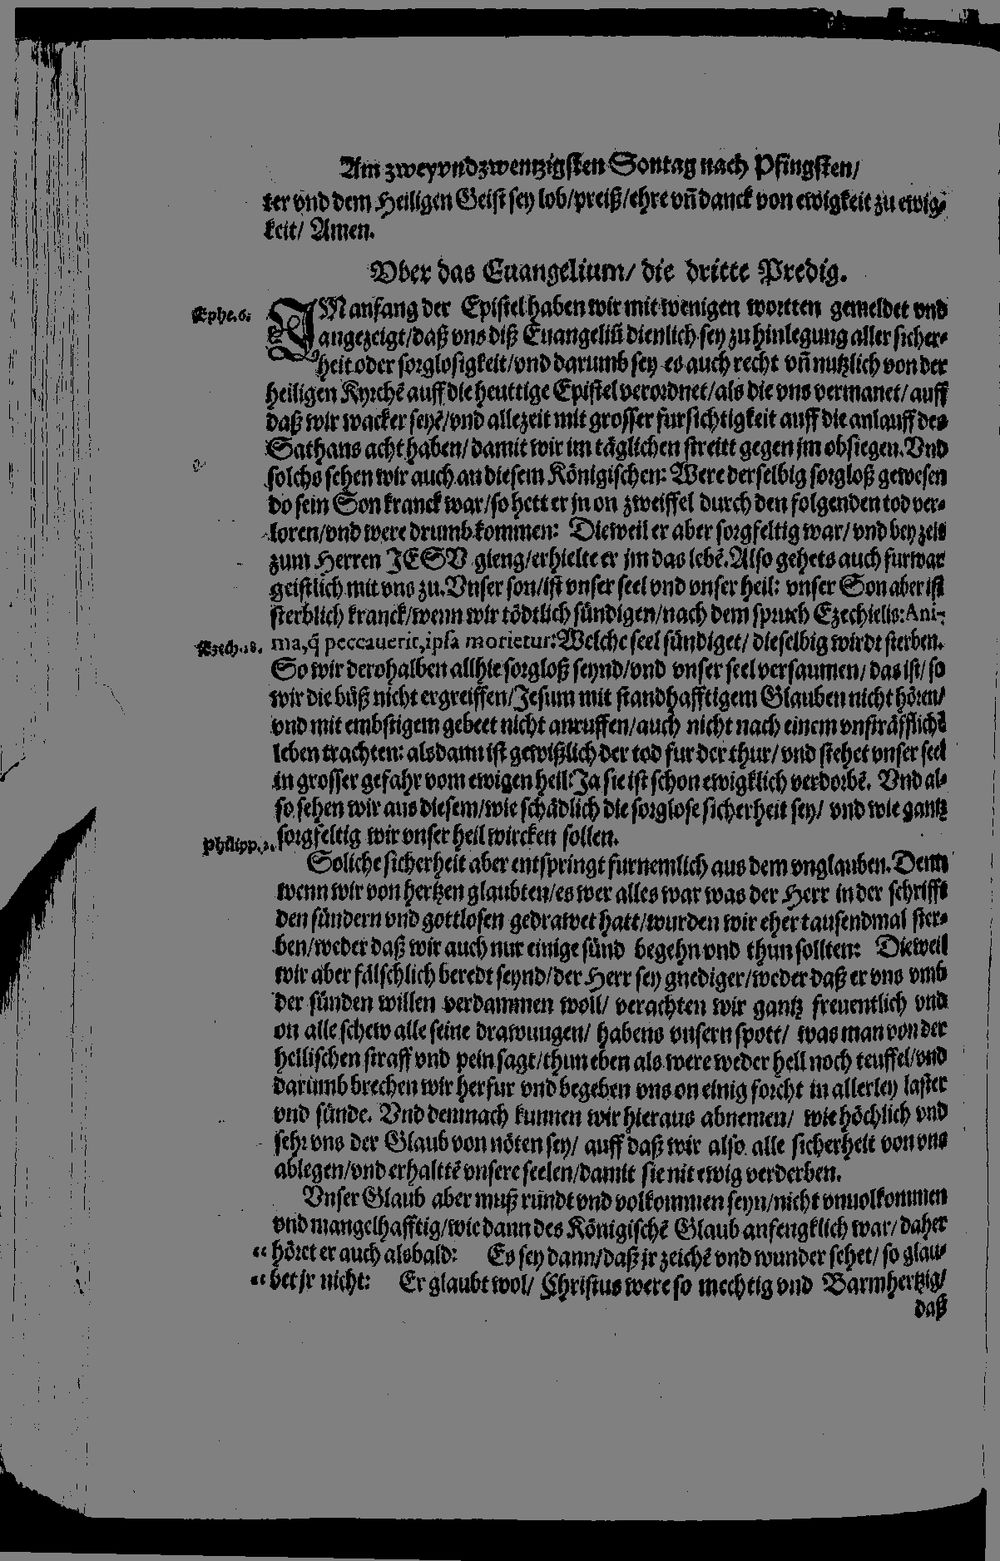 Am zweyvndzwentzigsten Sontag nach Pfingsten/
ter vnd dem Heiligen Geist sey lob/preiß/ehre vñ danck von ewigkeit zu ewig-
keit/ Amen.
Vber das Euangelium/ die dritte Predig.
Ephe.6.
IM anfang der Epistel haben wir mit wenigen wortten gemeldet vnd
angezeigt/daß vns diß Euangeliũ dienlich sey zu hinlegung aller sicher-
heit oder sorglosigkeit/vnd darumb sey es auch recht vñ nutzlich von der
heiligen Kyrchẽ auff die heuttige Epistel verordnet/als die vns vermanet/auff
daß wir wacker seyẽ/vnd allezeit mit grosser fursichtigkeit auff die anlauff des
Sathans acht haben/damit wir im täglichen streitt gegen jm obsiegen.Vnd
solchs sehen wir auch an diesem Königischen: Were derselbig sorgloß gewesen
do sein Son kranck war/so hett er jn on zweiffel durch den folgenden tod ver-
loren/vnd were drumb kommen: Dieweil er aber sorgfeltig war/vnd bey zeit
zum Herren JESV gieng/erhielte er jm das lebẽ.Also gehets auch furwar
geistlich mit vns zu.Vnser son/ist vnser seel vnd vnser heil: vnser Son aber ist
sterblich kranck/wenn wir tödtlich sündigen/nach dem spruch Ezechielis:Ani-
Ezech.18.
ma,q̃ peccauerit,ipsa morietur:Welche seel sündiget/ dieselbig wirdt sterben.
So wir derohalben allhie sorgloß seynd/vnd vnser seel versaumen/das ist/so
wir die büß nicht ergreiffen/Jesum mit standhafftigem Glauben nicht hören/
vnd mit embstigem gebeet nicht anruffen/auch nicht nach einem vnsträfflichẽ
leben trachten: alsdann ist gewißlich der tod fur der thur/vnd stehet vnser seel
in grosser gefahr vom ewigen heil:Ja sie ist schon ewigklich verdorbẽ. Vnd al-
so sehen wir aus diesem/wie schädlich die sorglose sicherheit sey/ vnd wie gantz
Philipp.2.
sorgfeltig wir vnser heil wircken sollen.
Soliche sicherheit aber entspringt furnemlich aus dem vnglauben.Denn
wenn wir von hertzen glaubten/es wer alles war was der Herr in der schrifft
den sündern vnd gottlosen gedrawet hatt/wurden wir eher tausendmal ster-
ben/weder daß wir auch nur einige sünd begehn vnd thun sollten: Dieweil
wir aber fälschlich beredt seynd/der Herr sey gnediger/weder daß er vns vmb
der sünden willen verdammen woll/ verachten wir gantz freuentlich vnd
on alle schew alle seine drawungen/ habens vnsern spott/ was man von der
hellischen straff vnd pein sagt/thun eben als were weder hell noch teuffel/vnd
darumb brechen wir herfur vnd begeben vns on einig forcht in allerley laster
vnd sünde. Vnd demnach kunnen wir hieraus abnemen/ wie höchlich vnd
sehr vns der Glaub von nöten sey/ auff daß wir also alle sicherheit von vns
ablegen/vnd erhalttẽ vnsere seelen/damit sie nit ewig verderben.
Vnser Glaub aber muß rundt vnd volkommen seyn/nicht vnuolkommen
vnd mangelhafftig/wie dann des Königischẽ Glaub anfengklich war/daher
“ höret er auch alsbald: Es sey dann/daß jr zeichẽ vnd wunder sehet/ so glau-
“ bet jr nicht: Er glaubt wol/ Christus were so mechtig vnd Barmhertzig/
daß